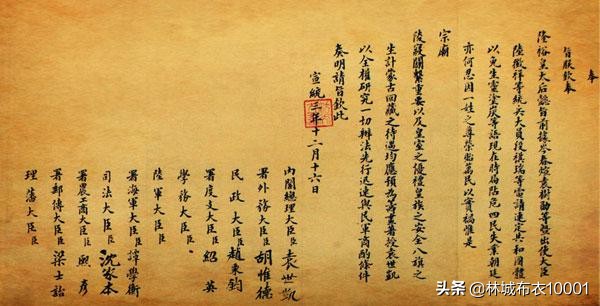 奉
旨朕欽奉
隆裕皇太后懿旨前據岑春煊袁樹勛等暨出使大臣
陸徵祥等統兵大員段祺瑞等電請速定共和國體
以免生靈塗炭等語現在時局阽危四民失業朝廷
亦何忍因一姓之尊榮貽萬民以實禍惟是
宗廟
陵寢關繫重要以及皇室之優禮皇族之安全八旗之
生計蒙古回藏之待遇均應預為籌畫著授袁世凱
以全權研究一切辦法先行迅速與民軍商酌條件
奏明請旨欽此
宣統三年十二月十六日
內閣總理大臣臣袁世凱
署外務大臣臣胡惟德
民政大臣臣趙秉鈞
署度支大臣臣紹英
學務大臣臣
陸軍大臣臣
署海軍大臣臣譚學衡
司法大臣臣沈家本
署農工商大臣臣熙彥
署郵傳大臣臣梁士詒
理藩大臣臣
头条 @林城布衣10001